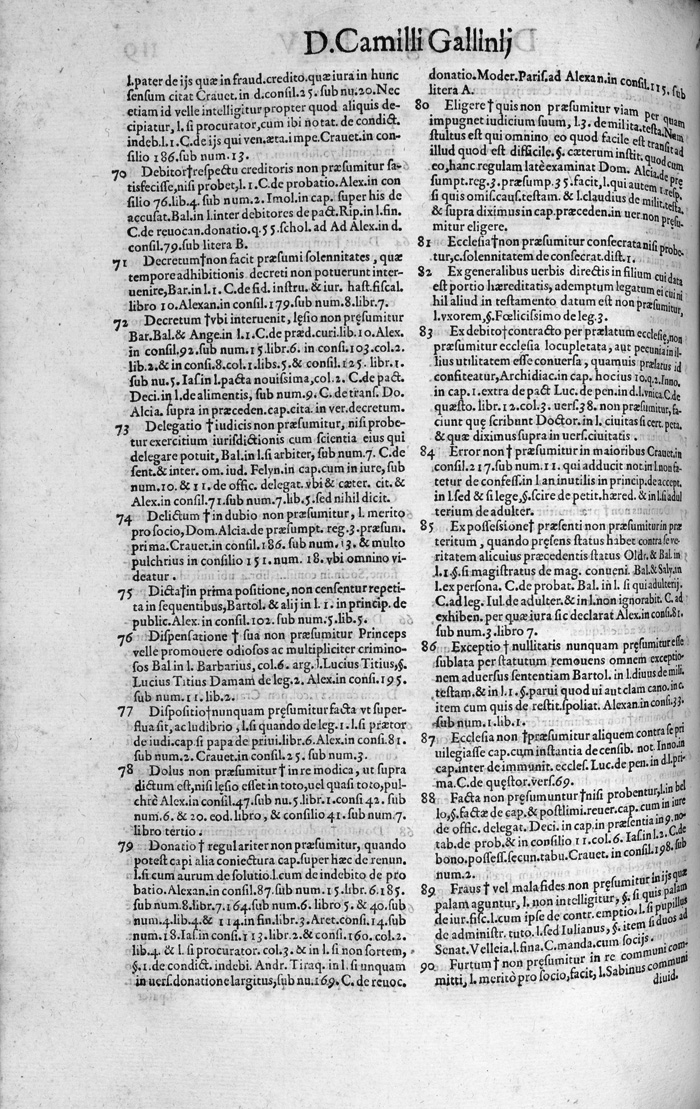 D. Camilli Gallinij
l. pater de ijs quæ in fraud. credito. quæ iura in hunc
sensum citat Crauet. in d. consil. 25. sub nu. 20. Nec
etiam id velle intelligitur propter quod aliquis de-
cipiatur, l. si procurator, cum ibi notat. de condict.
indeb. l. 1. C. de ijs qui ven. æta. impe. Crauet. in con-
silio 186. sub num. 13.
70 Debitor† respectu creditoris non præsumitur sa-
tisfecisse, nisi probet, l. 1. C. de probatio. Alex. in con
silio 76. lib. 4. sub num. 2. Imol. in cap. super his de
accusat. Bal. in l. inter debitores de pact. Rip. in l. fin.
C. de reuocan. donatio. q. 55. schol. ad Ad Alex. in d.
consil. 79. sub litera B.
71 Decretum† non facit præsumi solennitates, quæ
tempore adhibitionis decreti non potuerunt inter-
uenire, Bar. in l. 1. C. de fid. instru. & iur. hast. fiscal.
libro 10. Alexan. in consil. 179. sub num. 8. libr. 7.
72 Decretum † vbi interuenit, lęsio non pręsumitur
Bar. Bal. & Ange. in l. 1. C. de præd. curi. lib. 10. Alex.
in consil. 92. sub num. 15. libr. 6. in consi. 103. col. 2.
lib. 2. & in consi. 8. col. 1. libs. 5. & consil. 125. libr. 1.
sub nu. 5. Ias. in l. pacta nouissima, col. 2. C. de pact.
Deci. in l. de alimentis, sub num. 9. C. de trans. Do.
Alcia. supra in præceden. cap. cita. in ver. decretum.
73 Delegatio † iudicis non præsumitur, nisi probe-
tur exercitium iurisdictionis cum scientia eius qui
delegare potuit, Bal. in l. si arbiter, sub num. 7. C. de
sent. & inter. om. iud. Felyn. in cap. cum in iure, sub
num. 10. & 11. de offic. delegat. vbi & cæter. cit. &
Alex. in consil. 71. sub num. 7. lib. 5. sed nihil dicit.
74 Delictum † in dubio non præsumitur, l. merito
pro socio, Dom. Alcia. de præsumpt. reg. 3. præsum.
prima. Crauet. in consil. 186. sub num. 3. & multo
pulchrius in consilio 151. num. 18. vbi omnino vi-
deatur.
75 Dicta† in prima positione, non censentur repeti-
ta in sequentibus, Bartol. & alij in l. 1. in princip. de
public. Alex. in consil. 102. sub num. 5. lib. 5.
76 Dispensatione † sua non præsumitur Princeps
velle promouere odiosos ac multipliciter crimino-
sos Bal in l. Barbarius, col. 6. arg. l. Lucius Titius, §.
Lucius Titius Damam de leg. 2. Alex. in consi. 195.
sub num. 11. lib. 2.
77 Dispositio† nunquam pręsumitur facta vt super-
flua sit, ac ludibrio, l. si quando de leg. 1. l. si prætor
de iudi. cap. si papa de priui. libr. 6. Alex. in consi. 81.
sub num. 2. Crauet. in consil. 25. sub num. 3.
78 Dolus non præsumitur † in re modica, ut supra
dictum est, nisi lęsio esset in toto, uel quasi toto, pul-
chrè Alex. in consil. 47. sub nu. 5. libr. 1. consi 42. sub
num. 6. & 20. eod. libro, & consilio 41. sub num. 7.
libro tertio.
79 Donatio † regulariter non præsumitur, quando
potest capi alia coniectura cap. super hæc de renun.
l. si cum aurum de solutio. l. cum de indebito de pro
batio. Alexan. in consil. 87. sub num. 15. libr. 6. 185.
sub num. 8. libr. 7. 164. sub num. 6. libro 5. & 40. sub
num. 4. lib. 4. & 114. in fin. libr. 3. Aret. consi. 14. sub
num. 18. Ias. in consi. 113. libr. 2. & consi. 160. col. 2.
lib. 4. & l. si procurator. col. 3. & in l. si non sortem,
§. 1. de condict. indebi. Andr. Tiraq. in l. si unquam
in uers. donatione largitus, sub nu. 169. C. de reuoc.
donatio. Moder. Paris. ad Alexan. in consil. 115. sub
litera A.
80 Eligere † quis non præsumitur viam per quam
impugnet iudicium suum, l. 3. de milita. testa. Nam
stultus est qui omnino eo quod facile est transit ad
illud quod est difficile. §. cæterum instit. quod cum
eo, hanc regulam latè examinat Dom. Alcia. de pre
sumpt. reg. 3. præsump. 35. facit, l. qui autem 1. resp.
si quis omis. cau. testam. & l. claudius de milit. testa.
& supra diximus in cap. præceden. in uer. non pręsu-
mitur eligere.
81 Ecclesia† non præsumitur consecrata nisi probe-
tur, c. solennitatem de consecrat. dist. 1.
82 Ex generalibus uerbis directis in filium cui data
est portio hæreditatis, ademptum legatum ei cui ni
hil aliud in testamento datum est non præsumitur,
l. vxorem, §. Fœlicissimo de leg. 3.
83 Ex debito† contracto per prælatum ecclesię, non
præsumitur ecclesia locupletata, aut pecunia in il-
lius utilitatem esse conuersa, quamuis prælatus id
confiteatur, Archidiac. in cap. hoc ius 10. q. 2. Inno.
in cap. 1. extra de pact Luc. de pen. in d. l. vnica C. de
quæsto. libr. 12. col. 3. uers. 38. non præsumitur, fa-
ciunt que scribunt Doctor. in l. ciuitas si cert. peta.
& quæ diximus supra in uers. ciuitatis.
84 Error non † præsumitur in maioribus Crauet. in
consil. 217. sub num. 11. qui adducit not. in l. non fa-
tetur de confess. in l. an inutilis in princip. de accept.
in l. sed & si lege, §. scire de petit. hæred. & in l. si adul
terium de adulter.
85 Ex possessione† præsenti non præsumitur in præ
teritum, quando pręsens status habet contra se ve-
ritatem alicuius præcedentis status Oldr. & Bal. in
l. 1. §. si magistratus de mag. conueni. Bal. & Saly. in
l. ex persona. C. de probat. Bal. in l. si qui adulterij.
C. ad leg. Iul. de adulter. & in l. non ignorabit. C. ad
exhiben. per quæ iura sic declarat Alex. in consi. 81.
sub num. 3. libro 7.
86 Exceptio † nullitatis nunquam pręsumitur esse
sublata per statutum remouens omnem exceptio-
nem aduersus sententiam Bartol. in l. diuus de mili.
testam. & in l. 1. §. parui quod ui aut clam. cano. in c.
item cum quis de restit. spoliat. Alexan. in consi. 33.
sub num. 1. lib. 1.
87 Ecclesia non † præsumitur aliquem contra se pri
uilegiasse cap. cum instantia de censib. not. Inno. in
cap. inter de immunit. eccles. Luc. de pen. in d. l. pri-
ma. C. de quęstor. vers. 69.
88 Facta non præsumuntur † nisi probentur, l. in bel
lo, §. factæ de cap. & postlimi. reuer. cap. cum in iure
de offic. delegat. Deci. in cap. in præsentia in 9. no-
tab. de prob. & in consilio 11. col. 6. Ias. in l. 2. C. de
bono. possess. secun. tabu. Crauet. in consil. 198. sub
num. 2.
89 Fraus † vel mala fides non pręsumitur in ijs quæ
palam aguntur, l. non intelligitur, §. si quis palam
de iur. fisc. l. cum ipse de contr. emptio. l. si pupillus
de administr. tuto. l. sed Iulianus, §. item si duos ad
Senat. Velleia. l. fina. C. manda. cum socijs.
90 Furtum † non pręsumitur in re communi com-
mitti, l. meritò pro socio, facit, l. Sabinus communi
diuid.